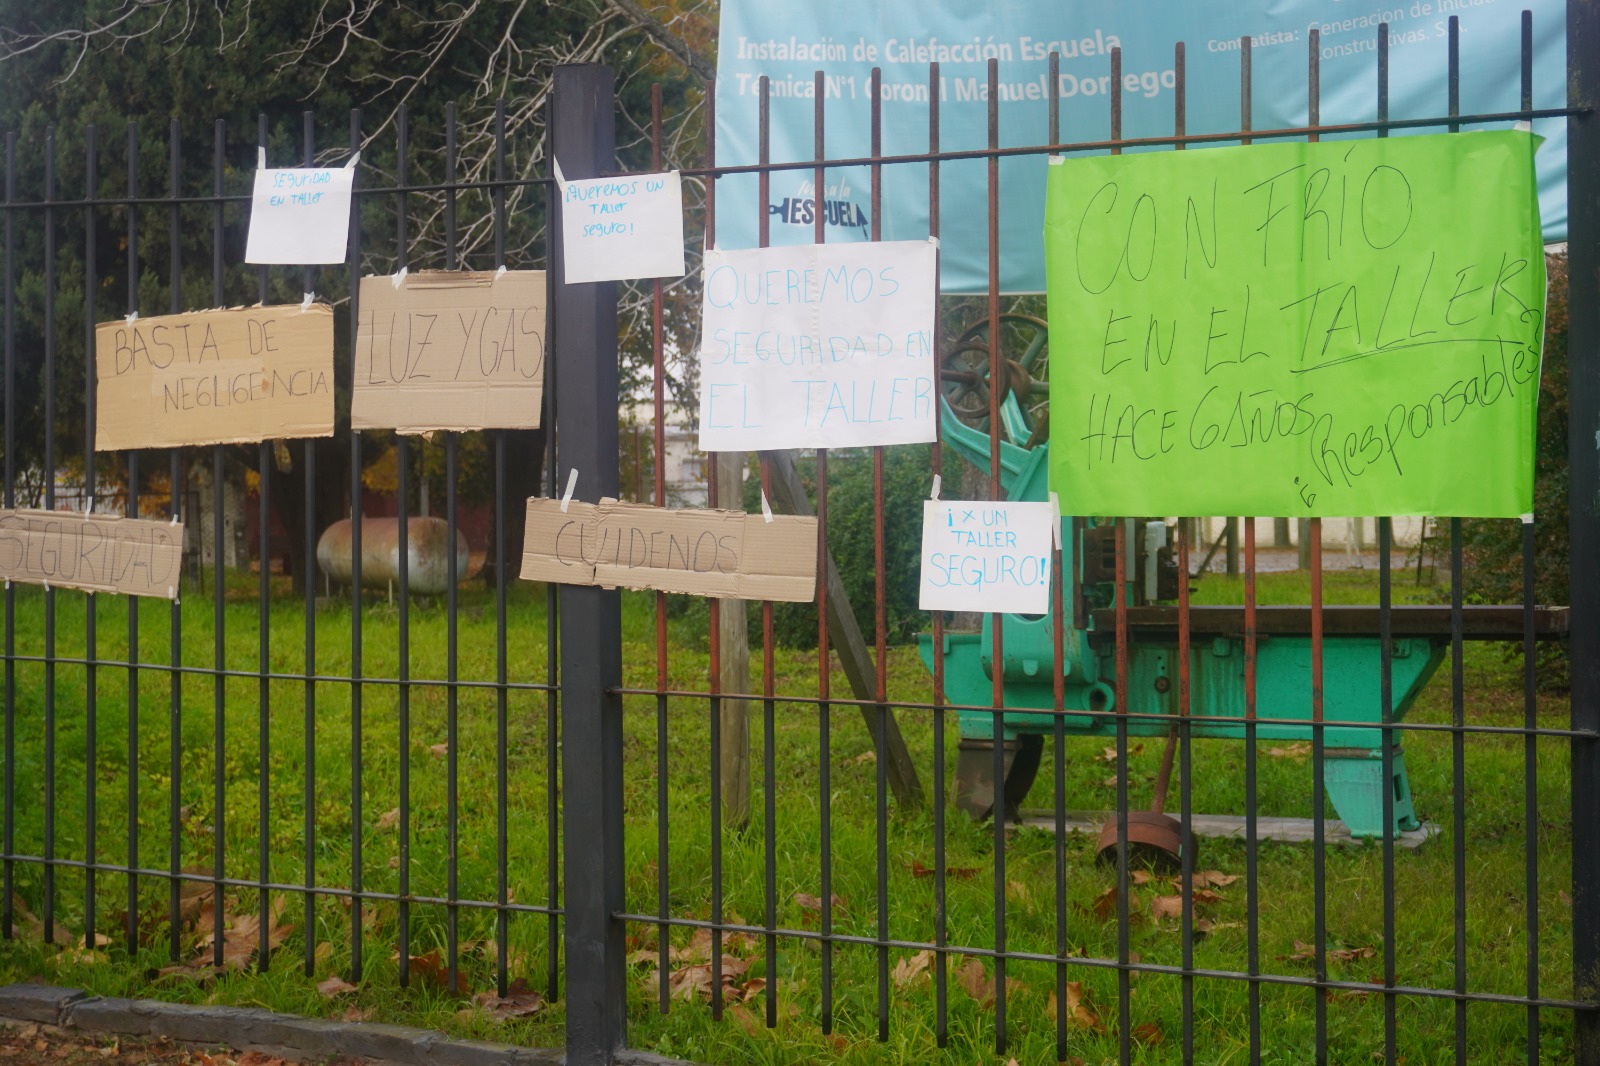 Instalación de Calefacción Escuela
Técnica N°1 Coronel Manuel Dorrego
Contratista: Generacion de
Constructivas. S.A.
ESCUELA
SEGURIDAD
EN TALLER
¡QUEREMOS UN
TALLER
SEGURO!
BASTA DE
NEGLIGENCIA
LUZ Y GAS
QUEREMOS
SEGURIDAD EN
EL TALLER
CON FRÍO
EN EL TALLER
HACE 6 AÑOS
¿Responsables?
SEGURIDAD
CUIDENOS
¡X UN
TALLER
SEGURO!